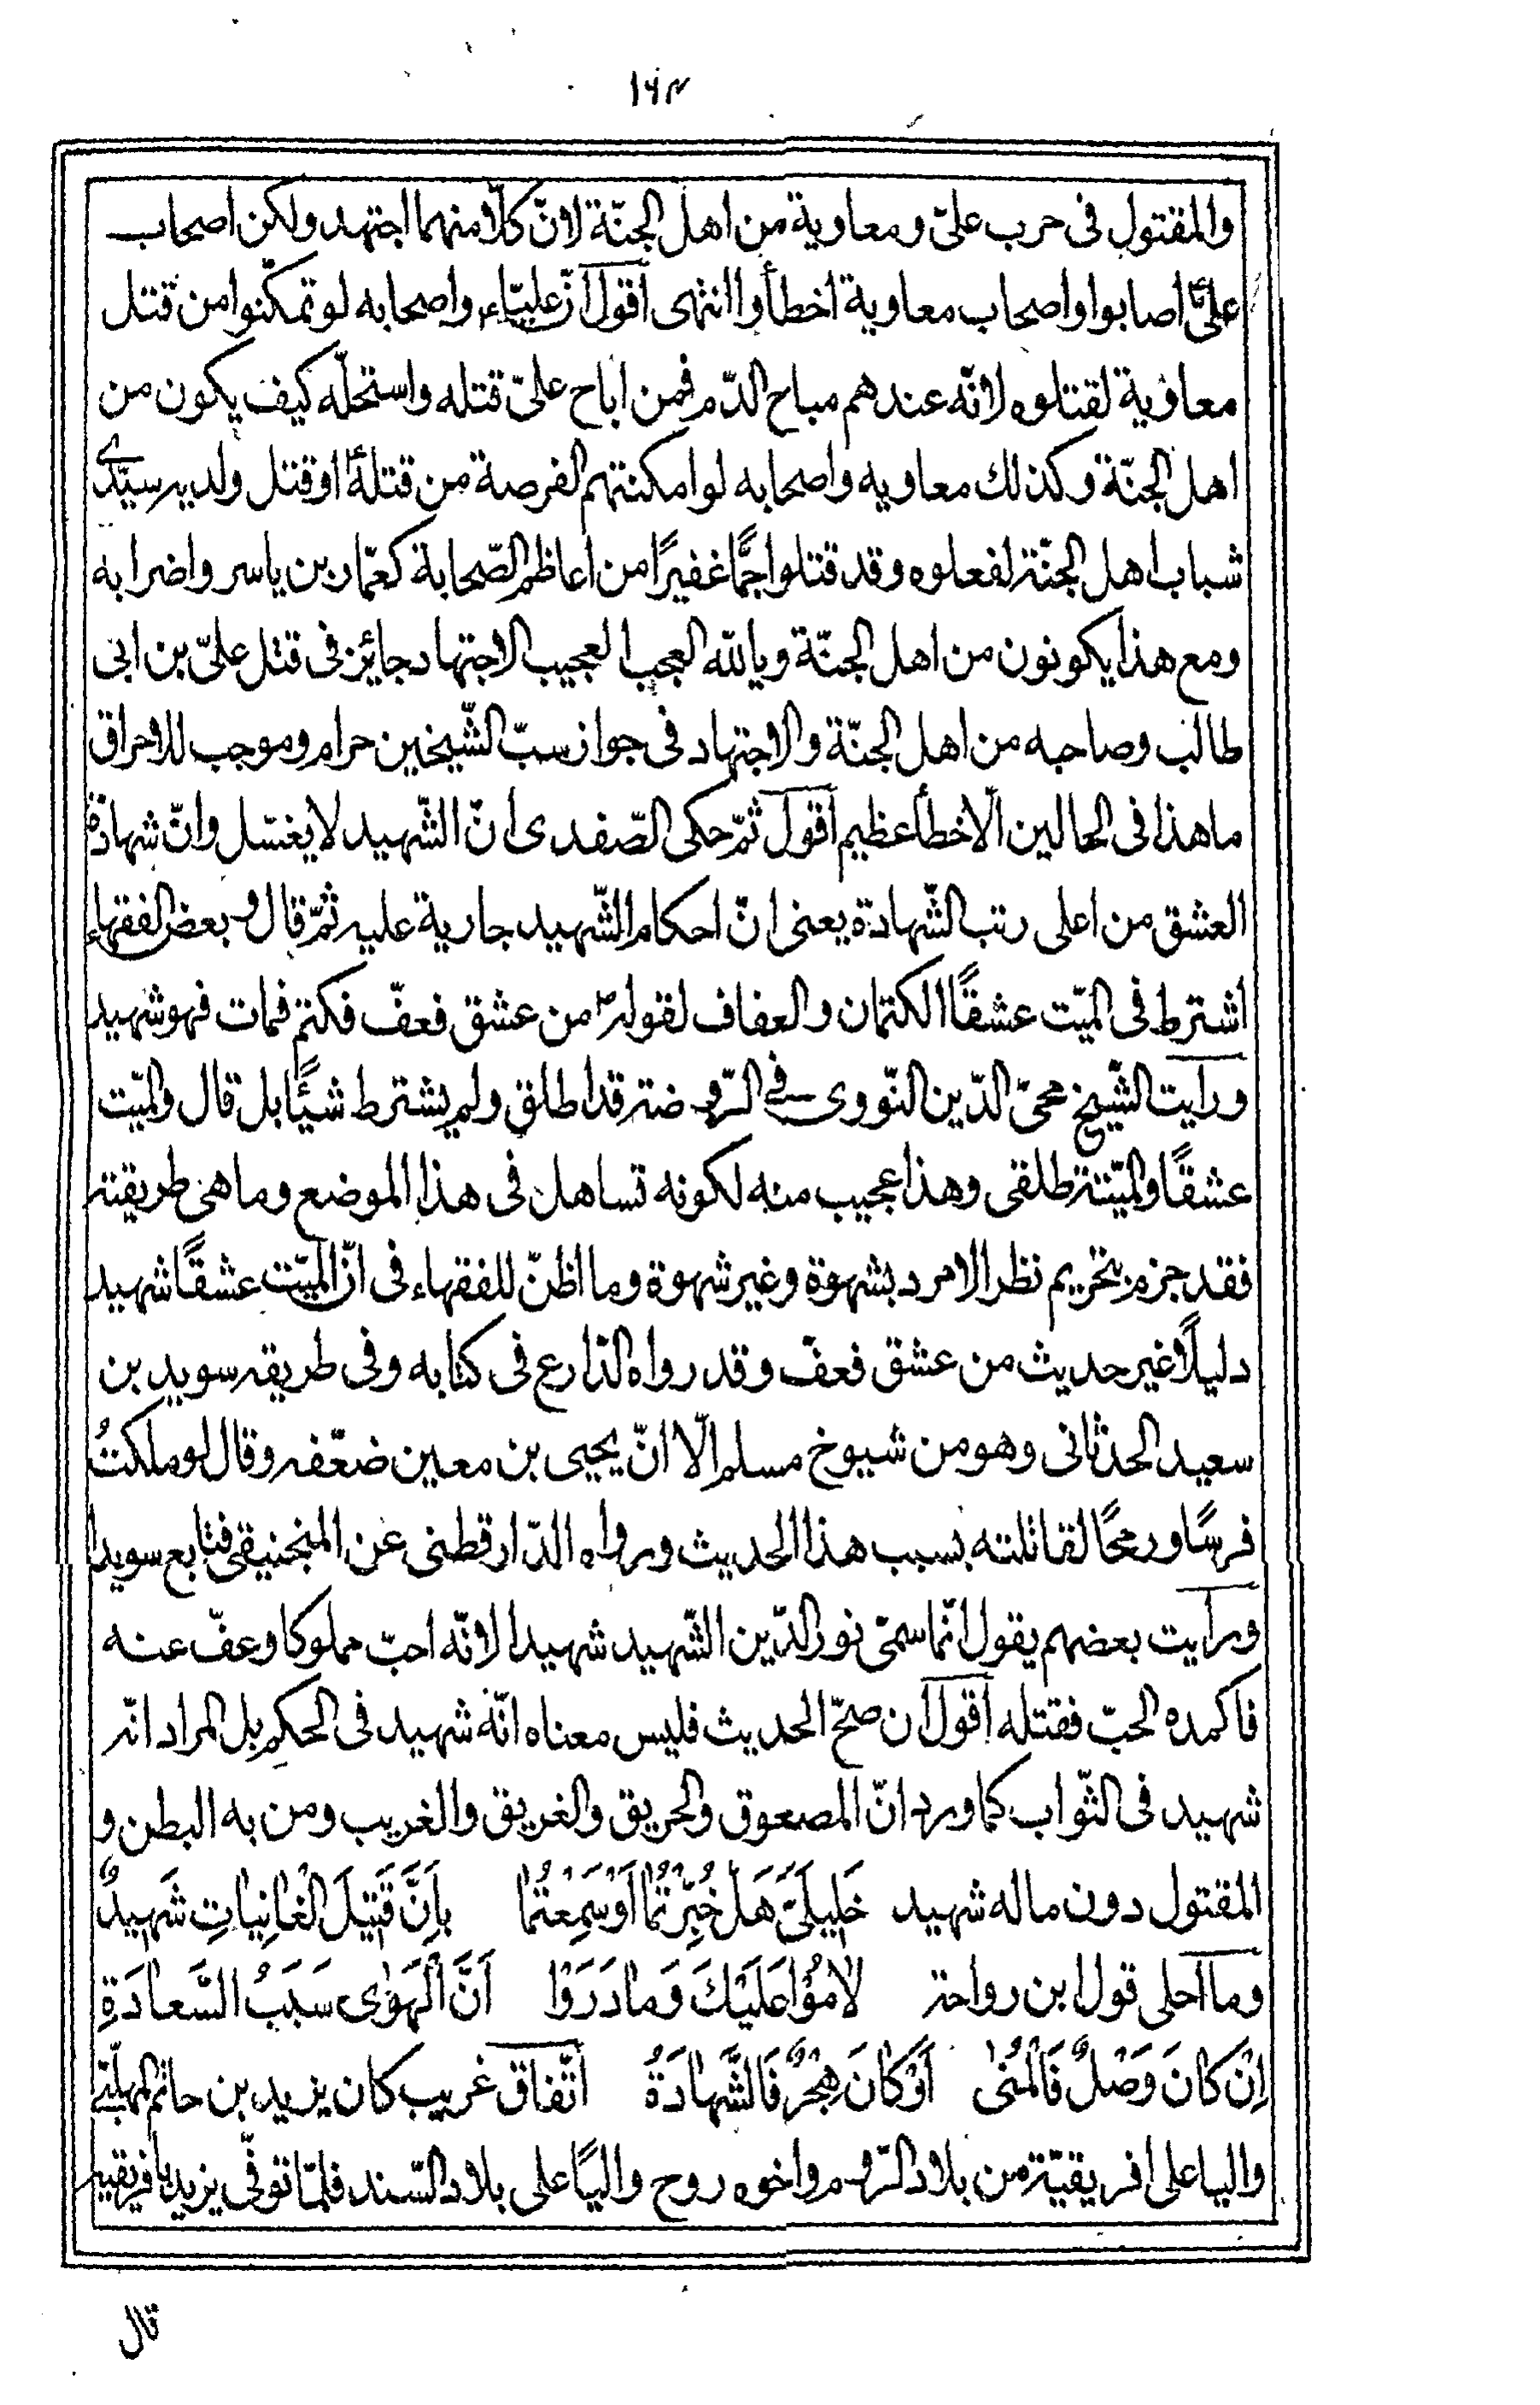 ١٦٣
والمقتول فى حرب علىّ ومعاوية من اهل الجنّة لانّ كلّا منهما اجتهد ولكن اصحاب
علىّ اصابوا واصحاب معاوية اخطأوا انتهى اقول انّ عليّاء واصحابه لو تمكّنوا من قتل
معاوية لقتلوه لانّه عندهم مباح الدّم فمن اباح علىّ قتله واستحلّه كيف يكون من
اهل الجنّة وكذلك معاويه واصحابه لو امكنتهم الفرصة من قتله او قتل ولديه سيّدى
شباب اهل الجنّة لفعلوه وقد قتلوا جمًّا غفيرًا من اعاظم الصّحابة كعمّار بن ياسر واضرابه
ومع هذا يكونون من اهل الجنّة ويالله العجب العجيب الاجتهاد جايز فى قتل علىّ بن ابى
طالب وصاحبه من اهل الجنّة والاجتهاد فى جواز سبّ الشّيخين حرام وموجب للاحراق
ما هذا فى الحالين الّا خطأ عظيم اقول ثمّ حكى الصّفدى انّ الشّهيد لا يغسّل وانّ شهادة
العشق من اعلى رتب الشّهادة يعنى انّ احكام الشّهيد جارية عليه ثمّ قال وبعض الفقهاء
اشترط فى الميّت عشقًا الكتمان والعفاف لقوله ص من عشق فعفّ فكتم فمات فهو شهيد
ورايت الشّيخ محىّ الدّين النّووى فى الرّوضة قد اطلق ولم يشترط شيئًا بل قال والميّت
عشقًا والميّتة طلقى وهذا عجيب منه لكونه تساهل فى هذا الموضع وما هى طريقته
فقد جزم بتحريم نظر الامرد بشهوة وغير شهوة وما اظنّ للفقهاء فى انّ الميّت عشقًا شهيد
دليلًا غير حديث من عشق فعفّ وقد رواه الذارع فى كتابه وفى طريقه سويد بن
سعيد الحدثانى وهو من شيوخ مسلم الّا انّ يحيى بن معين ضعّفه وقال لو ملكتُ
فرسًا ورمحًا لقاتلته بسبب هذا الحديث ورواه الدّارقطنى عن المنجنيقى فتابع سويدا
ورايت بعضهم يقول انّما سمّى نور الدّين الشّهيد شهيدا لانّه احبّ مملوكا وعفّ عنه
فاكمده الحبّ فقتله اقول ان صحّ الحديث فليس معناه انّه شهيد فى الحكم بل المراد انّه
شهيد فى الثّواب كما ورد انّ المصعوق والحريق والغريق والغريب ومن به البطن و
المقتول دون ماله شهيد خَلِيلَىَّ هَلْ خُبِّرْتُمَا اَوْ سَمِعْتُمَا بِاَنَّ قَتِيلَ الْغَانِيَاتِ شَهِيدٌ
وما احلى قول ابن رواحة لَامُوْا عَلَيْكَ وَمَا دَرَوْا اَنَّ الْهَوٰى سَبَبُ السَّعَادَةِ
اِنْ كَانَ وَصْلٌ فَالْمُنٰى اَوْ كَانَ هَجْرٌ فَالشَّهَادَةُ اتّفاق غريب كان يزيد بن حاتم المهلّبى
واليا على افريقيّة من بلاد الرّوم واخوه روح واليًا على بلاد السّند فلمّا توفّى يزيد بافريقيه
قال